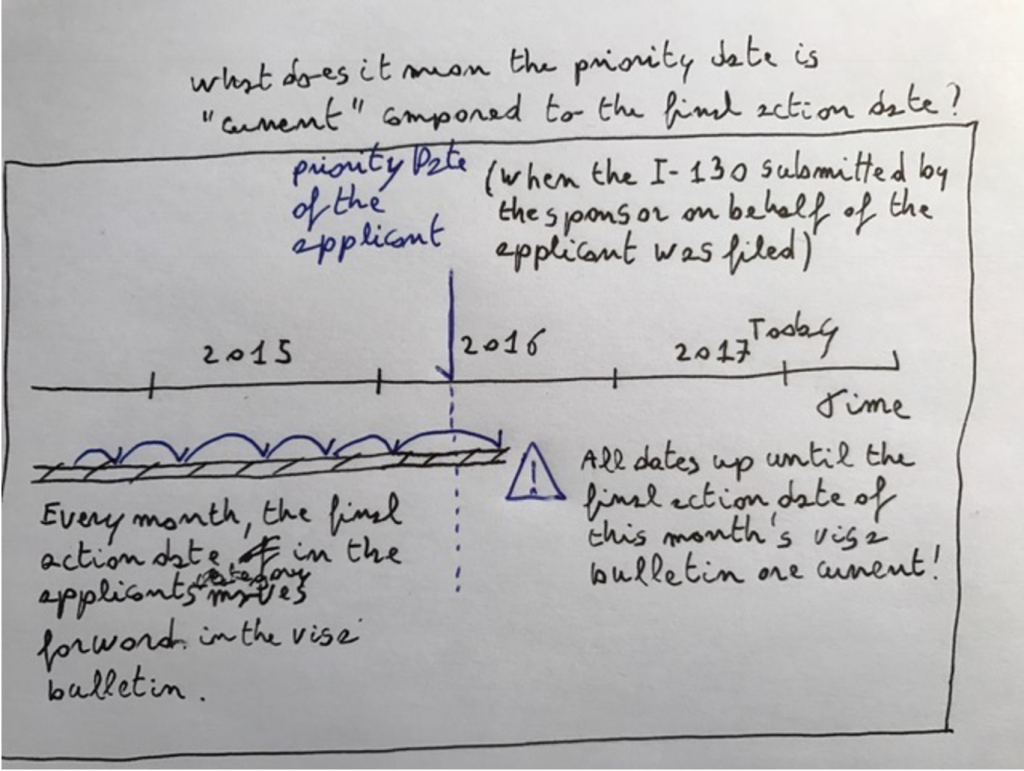 What does it mean the priority date is
"current" compared to the final action date?
priority Date
of the
applicant
(when the I-130 submitted by
the sponsor on behalf of the
applicant was filed)
2015
2016
2017
Today
Time
Every month, the final
action date in the
applicants category moves
forward in the visa
bulletin.
!
All dates up until the
final action date of
this month's visa
bulletin are current!